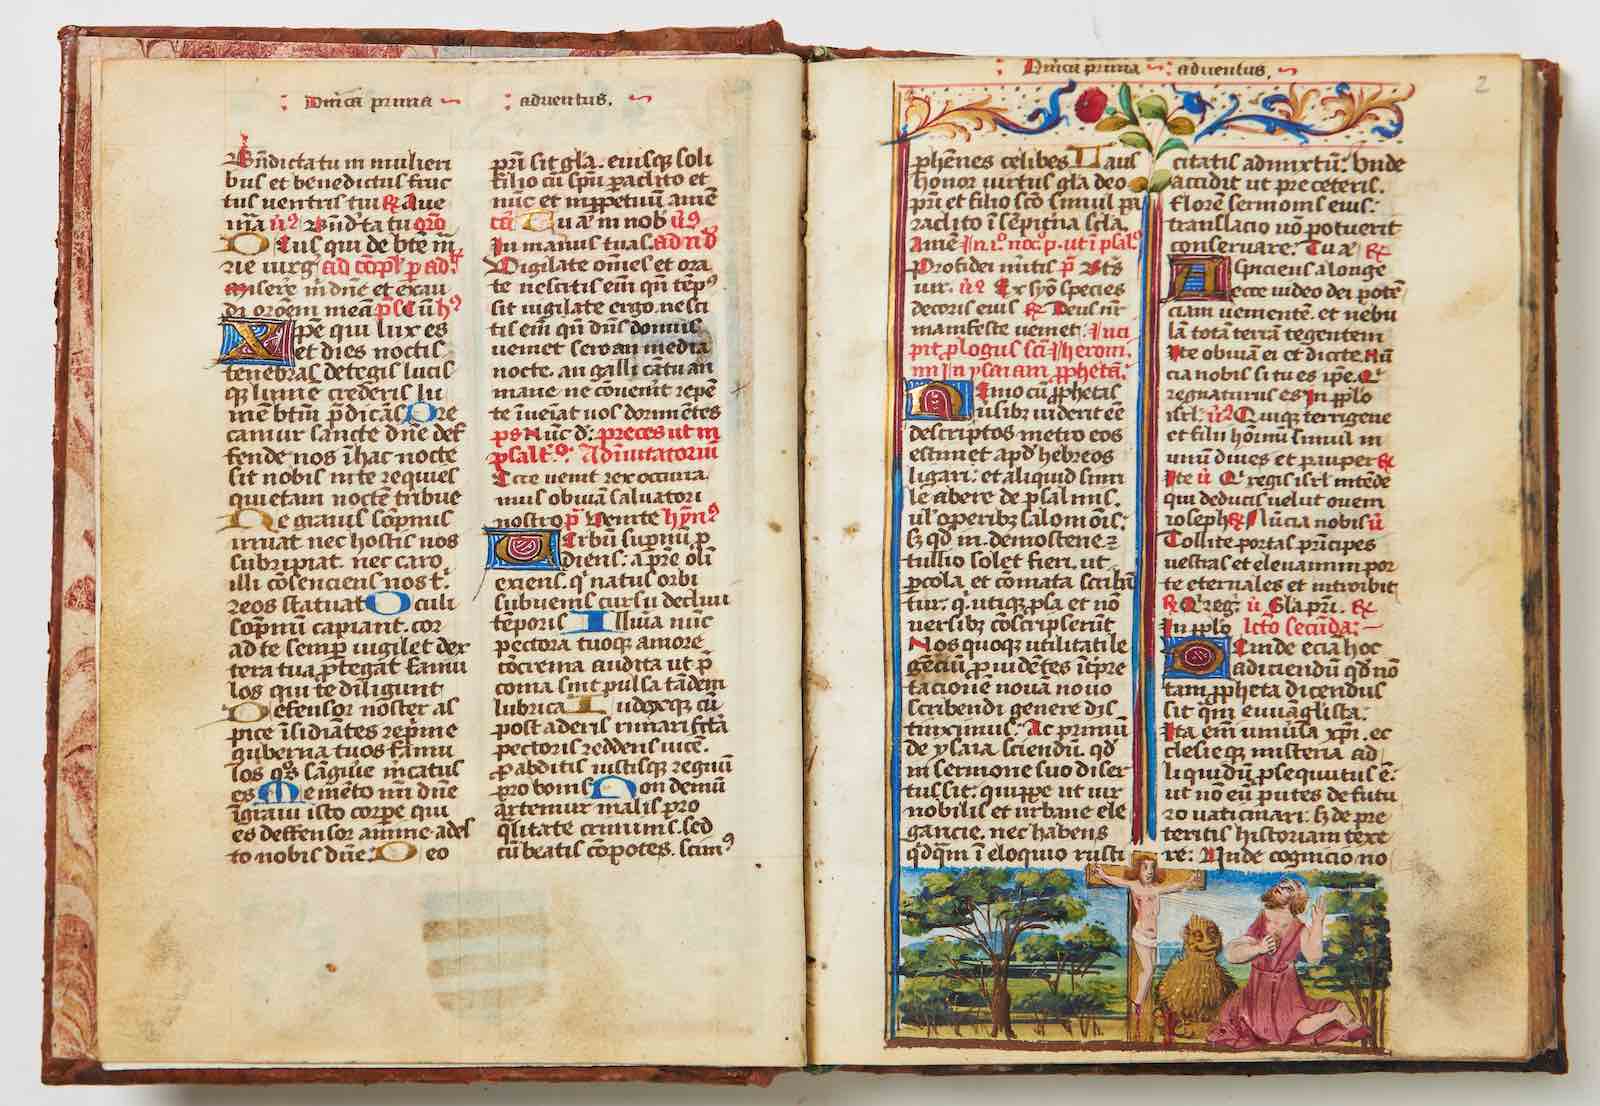 Dnica prima
adventus.
Bndicta tu in mulieri
bus et benedictus fruc
tus ventris tui ℟ Aue
mīa v̄ꝰ Bnd'ta tu orō
Deus qui de btē m̄
rie uirḡ ad cōpl' p ad'
Misere m̄ dn̄e et exau
di orōem meā ps̄ Cū hꝰ
Xp̄e qui lux es
et dies noctis
tenebras detegis lucis
q̄ lume crederis lu
mē btm̄ p̄dicās Pre
camur sancte dn̄e def
fende nos ī hac nocte
sit nobis in te requies
quietam noctē tribue
Ne grauis sōpnus
irruat nec hostis nos
subripiat. nec caro
illi cōsenciens nos t'
reos statuat Oculi
sōpnū capiant. cor
ad te semp uigilet dex
tera tua ptegat famu
los qui te diligunt
Defensor noster as
pice īsidiātes rep̄me
guberna tuos famu
los qͦs sāguie m̄catus
es Memēto nr̄i dn̄e
ī graui isto corpe qui
es deffensor anime ades
to nobis dn̄e Deo
pr̄i sit gl̄a. eiusq̄ soli
filio cū sp̄u paclito et
nūc et in ppetuū amē
Tu aū in nob v̄ꝰ
In manus tuas. ad n d
Vigilate om̄es et ora
te nescitis eīm qn̄ tēpꝰ
sit uigilate ergo. nesci
tis eīm qn̄ dn̄s domus
ueniet sero an media
nocte. an galli cātu an
mane ne cōuenīt repē
te īueīat uos dormiētes
ps̄ Nūc d: preces ut in
psalt'. Ad inuitatoriū
Ecce uenit rex occurra
mus obuiā saluatori
nostro p̄ Venite hȳnꝰ
Verbū supnū p
diens: a pr̄e olī
exiens. q' natus orbi
subuenis cursu decliui
tēporis Illuīa nūc
pectora tuoq̄ amore
cōcrema audita ut p̄
conia sint pulsa tādem
lubrica Iudexq̄ cū
post aderis rimari fctā
pectoris reddens uicē.
p abditis iustisq̄ regnū
pro bonis Non demū
artemur malis pro
q̄litate criminis. sed
cū beatis cōpotes. simꝰ
Dnica prima
adventus.
2
phēnes celibes Laus
honor uirtus gl̄a deo
pr̄i et filio scō simul pa
raclito ī sēpit̄na scl̄a.
Amē In
pro fidei mitis p̄
uir. v̄ꝰ Ex syō species
decoris eius ℟ Deus nr̄
manifeste ueniet Inci
pit plogus scī Iheroni
mi In ysaiam pphetā.
Nemo cū pphetas
uersibꝫ uiderit eē
descriptos metro eos
estimet apd' hebreos
ligari: et aliquid simi
le abere de psalmis.
ul' operibꝫ salomōis:
sꝫ qd̄ in. demostene ꝛ
tullio solet fieri. ut
p cola et comata scribā
tur. q̄. utiq̄ psa et nō
uersibꝫ cōscripserūt
Nos quoq̄ utilitati le
gēciū puidētes īterpre
tacionē nouā nouo
scribendi genere dis
tinximus: Ac primū
de ysaia. sciendū. qd̄
in sermone suo diser
tus sit: quippe ut uir
nobilis et urbane ele
gancie. nec habens
qd̄qm̄ ī eloquio rusti
citatis admixtū: Vnde
accidit ut pre ceteris.
florē sermonis eius:
translacio nō potuerit
conseruare: Tu aū ℟
Aspiciens a longe
ecce uideo dei potē
ciam uenientē. et nebu
lā totā terrā tegentem
Ite obuiā ei et dicite. Nū
cia nobis si tu es ip̄e. Qͥ
regnaturus es In pplo
isrl' v̄ꝰ Quiq̄ terrigene
et filii hōinū simul in
unū diues et pauper ℟
Ite v̄ Qͥ regis isrl' intēde
qui deducis uelut ouem
ioseph ℟ Nūcia nobis v̄
Tollite portas prīcipes
uestras et eleuamini por
te eternales et introibit
℟ Qͥ reg: v̄ Gl̄a pr̄i. ℟
In pplo lctō secūda:
Deinde ecīa hoc
adiciendū qd̄ nō
tam ppheta dicendus
sit qm̄ euuāglista.
Ita eīm uniūsa xp̄i. ec
clesieq̄ misteria ad
liquidū psequutus ē:
ut nō eū putes de futu
ro uaticinari: sꝫ de pre
teritis historiam texe
re: Vnde cognicio no